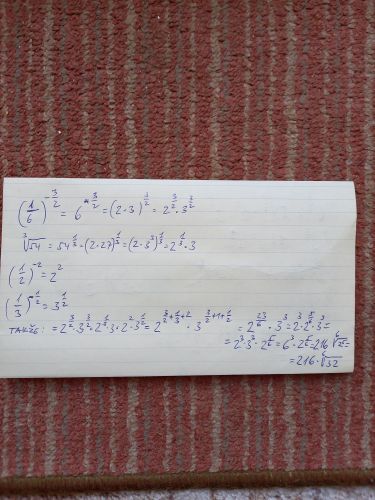 (1/6)^{-3/2} = 6^{+3/2} = (2·3)^{3/2} = 2^{3/2}·3^{3/2}
∛54 = 54^{1/3} = (2·27)^{1/3} = (2·3³)^{1/3} = 2^{1/3}·3
(1/2)^{-2} = 2²
(1/3)^{-1/2} = 3^{1/2}
TAKŽE: = 2^{3/2}·3^{3/2}·2^{1/3}·3·2²·3^{1/2} = 2^{3/2+1/3+2}·3^{3/2+1+1/2} = 2^{23/6}·3³ = 2³·2^{5/6}·3³ =
= 2³·3³·2^{5/6} = 6³·2^{5/6} = 216 ⁶√2⁵ =
= 216·⁶√32